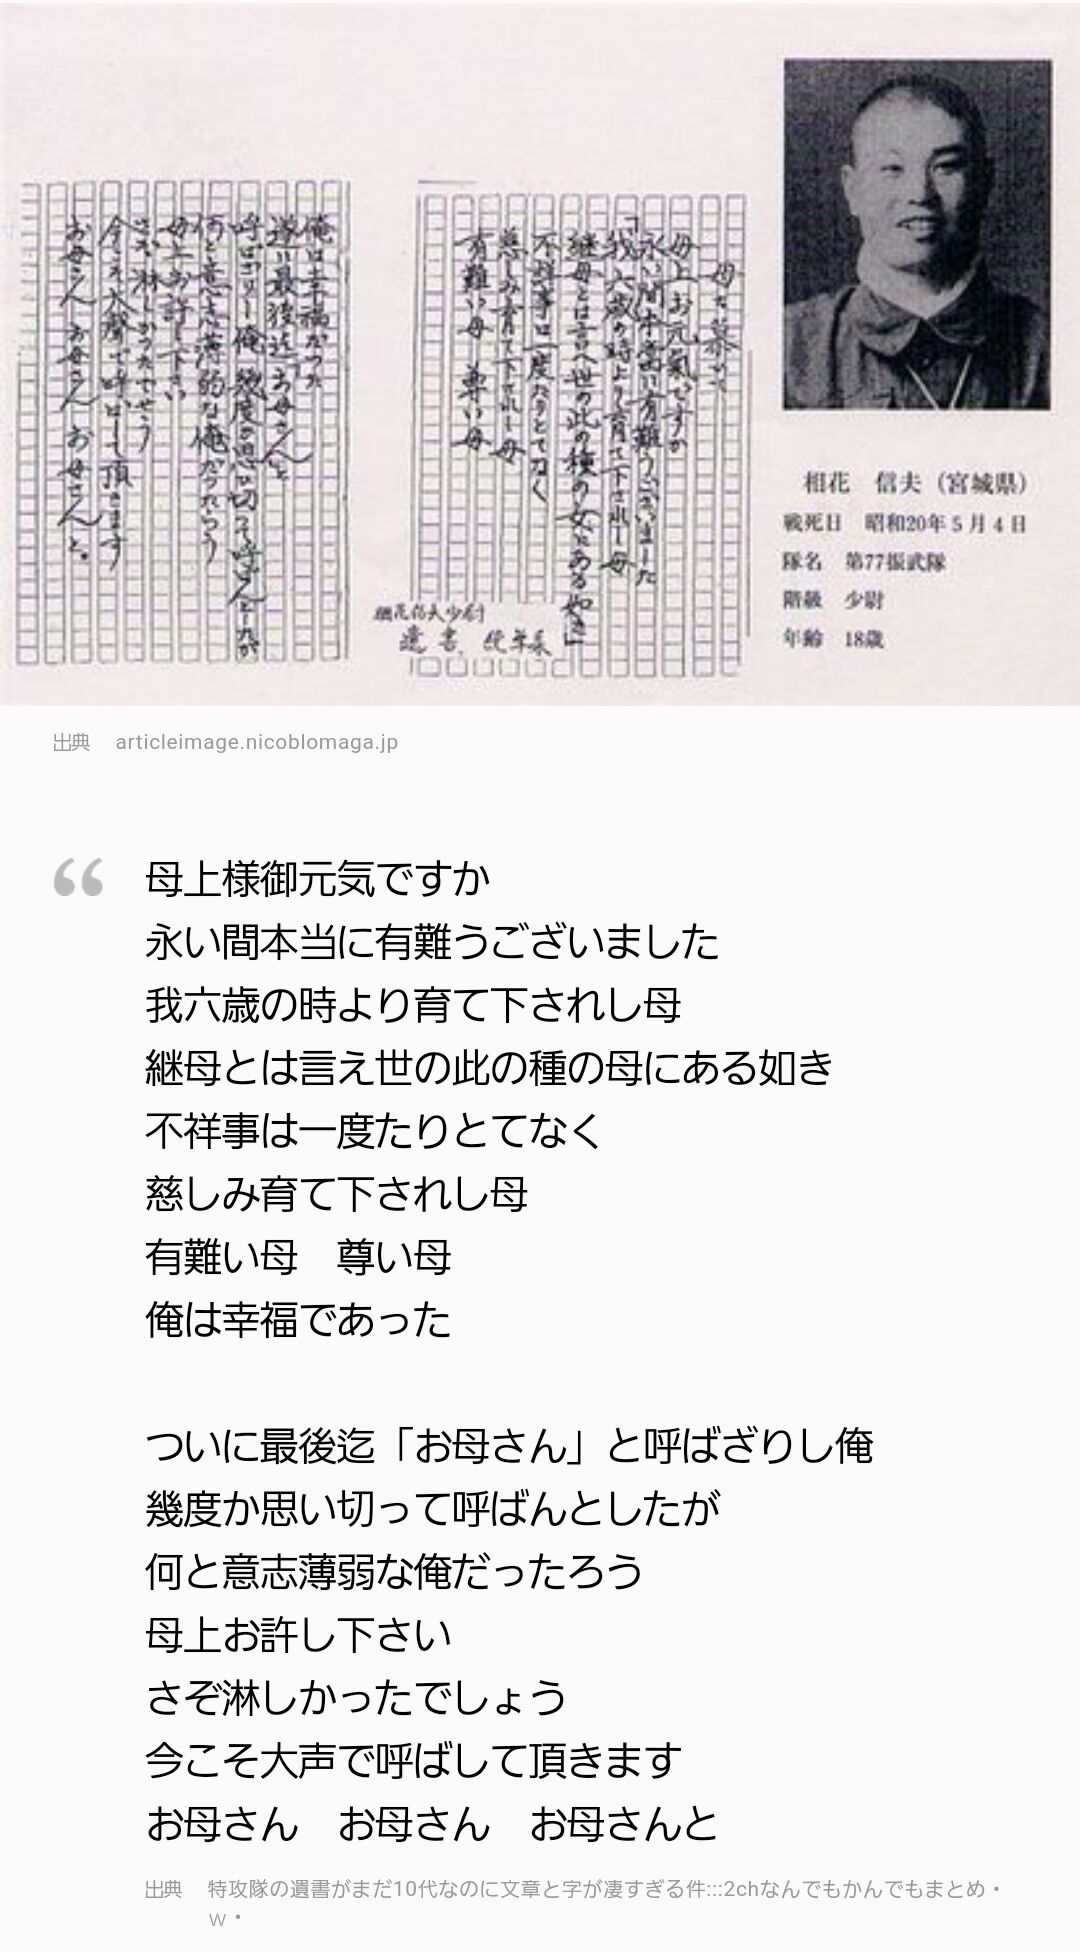 母を慕いて
母上お元気ですか
永い間本当に有難うございました
「我六歳の時より育て下されし母
継母とは言へ世の此の種の女にある如き」
不祥事は一度たりとてなく
慈しみ育て下されし母
有難い母 尊い母
俺は幸福だった
遂に最後迄「お母さん」と
呼ばざりし俺 幾度か思い切って呼ばんとしたが
何と意志薄弱な俺だったらう
母上お許し下さい
さぞ淋しかったでせう
今こそ大声で呼ばして頂きます
お母さん お母さん お母さんと。
相花信夫少尉
遺書
相花 信夫（宮城県）
戦死日 昭和20年5月4日
隊名 第77振武隊
階級 少尉
年齢 18歳
出典 articleimage.nicoblomaga.jp
母上様御元気ですか
永い間本当に有難うございました
我六歳の時より育て下されし母
継母とは言え世の此の種の母にある如き
不祥事は一度たりとてなく
慈しみ育て下されし母
有難い母　尊い母
俺は幸福であった
ついに最後迄「お母さん」と呼ばざりし俺
幾度か思い切って呼ばんとしたが
何と意志薄弱な俺だったろう
母上お許し下さい
さぞ淋しかったでしょう
今こそ大声で呼ばして頂きます
お母さん　お母さん　お母さんと
出典 特攻隊の遺書がまだ10代なのに文章と字が凄すぎる件:::2chなんでもかんでもまとめ・
ｗ・